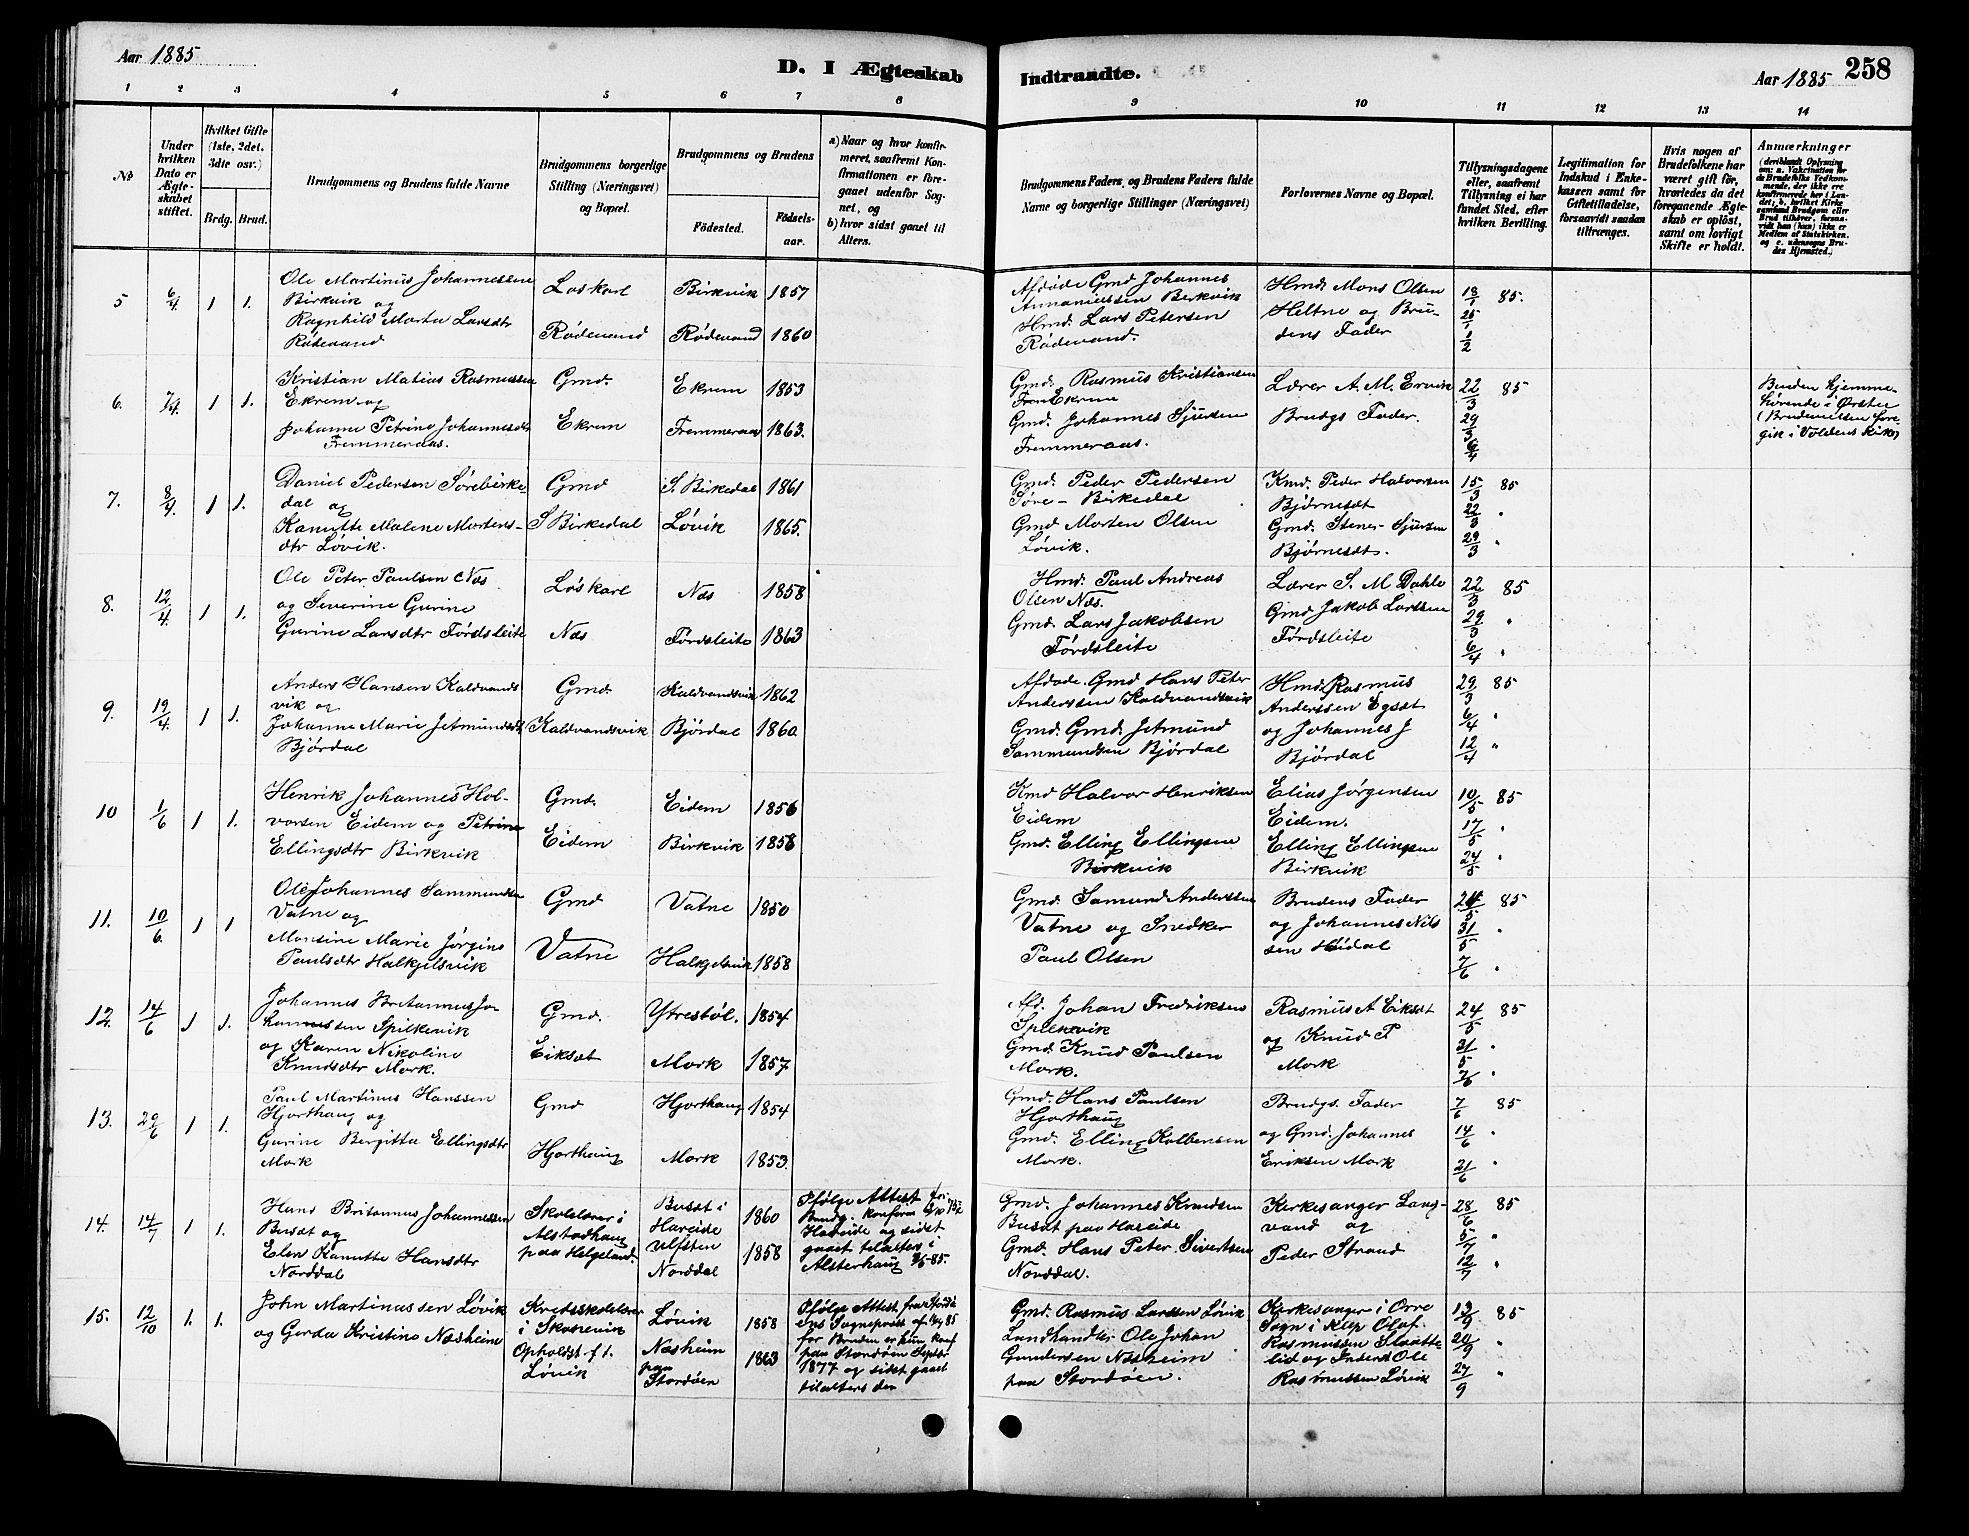 Aar 1885
D. I Ægteskab
Indtraadte.
Aar 1885
258
1 2 3 4 5 6 7 8
9 10 11 12 13 14
No
Under hvilken Dato er Ægteskabet stiftet.
Hvilket Gifte (1ste, 2det, 3die osv.)
Brdg. Brud.
Brudgommens og Brudens fulde Navne
Brudgommens borgerlige Stilling (Næringsvei) og Bopæl.
Brudgommens og Brudens
Fødested.
Fødsels-aar.
a) Naar og hvor konfirmeret, saafremt Konfirmationen er foregaaet udenfor Sognet, og
b) hvor sidst gaaet til Alters.
Brudgommens Faders, og Brudens Faders fulde Navne og borgerlige Stillinger (Næringsvei)
Forlovernes Navne og Bopæl.
Tillysningsdagene eller, saafremt Tillysning ei har fundet Sted, efter hvilken Bevilling.
Legitimation for Indskud i Enkekassen samt for Giftetilladelse, forsaavidt saadan tiltrænges.
Hvis nogen af Brudefolkene har været gift før, hvorledes da det foregaaende Ægteskab er opløst, samt om lovligt Skifte er holdt.
Anmærkninger
(deriblandt Oplysning om: a. Vakcination for de Brudefolks Vedkommende, der ikke ere konfirmerede her i Landet; b. hvilket Kirkesamfund Brudgom eller Brud tilhører, forsaavidt han (hun) ikke er Medlem af Statskirken, og c. udensogns Brudes Hjemsted.)
5 6/4 1 1.
Ole Martinus Johannessen
Birkvik og
Ragnhild Marta Larsdtr
Rødevand
Løskarl
Rødevand
Birkvik 1857
Rødevand 1860
Afdøde Gmd Johannes
Annaniessen Berkvik
Hmd. Lars Petersen
Rødevand.
Hmd. Mons Olsen
Heltne og Bru-
dens Fader
18/1 85.
25/1
1/2
6. 7/4 1 1.
Kristian Matias Rasmussen
Ekrem og
Johanne Petrine Johannesdt
Fremmeraas.
Gmd.
Ekrem
Ekrem 1853
Fremmeraas 1863.
Gmd. Rasmus Kristiansen
Ekrem
Gmd. Johannes Sjursen
Fremmeraas.
Lærer A. M. Ervik
Brudgs Fader.
22/3 85
29/3
6/4
Bruden hjemme-
hørende i Ørsten
(Brudevielsen fore-
gik i Voldens Kirke)
7. 8/4 1 1.
Daniel Pedersen Sørebirke-
dal og
Kanutte Malene Mortens-
dtr Løvik.
Gmd
S Birkedal
S. Birkedal 1861
Løvik 1865.
Gmd. Peder Pedersen
Søre-Birkedal
Gmd Morten Olsen
Løvik.
Kmd. Peder Halvorsen
Bjørnesæt
Gmd. Stener Sjursen
Bjørnesæt.
15/3 85
22/3 "
29/3 "
8. 12/4 1 1.
Ole Peter Paulsen Næs
og Severine Gurine
Gurine Larsdtr Førdsleite
Løskarl
Næs
Næs 1858
Førdsleite 1863
Hmd. Paul Andreas
Olsen Næs.
Gmd. Lars Jakobsen
Førdsleite
Lærer S. M Dahle
Gmd Jakob Larssen
Førdsleite
22/3 85
29/3 "
6/4 "
9. 19/4 1 1.
Anders Hansen Kaldvands
vik og
Johanne Marie Jetmundsdt
Bjørdal
Gmd.
Kaldvandsvik
Kaldvandsvik 1862
Bjørdal 1860.
Afdøde Gmd Hans Peter
Anderssen Kaldvandsvik
Gmd. Gmd. Jetmund
Sammundsen Bjørdal
Hmd. Rasmus
Anderssen Egsæt
og Johannes J
Bjørdal
29/3 85
6/4 "
12/4 "
10 1/6 1 1.
Henrik Johannes Hal-
vorsen Eidem og Petrine
Ellingsdtr Birkvik
Gmd.
Eidem
Eidem 1856
Birkvik 1858
Kmd Halvor Henriksen
Eidem
Gmd. Elling Ellingsen
Birkvik
Elias Jørgensen
Eidem.
Elling Ellingsen
Birkvik
10/5 85
17/5 "
24/5 "
11. 10/6. 1 1
Ole Johannes Sammundsen
Vatne og
Monsine Marie Jørgine
Paulsdtr Halkjelsvik
Gmd
Vatne
Vatne 1850
Halkjelsvik 1858
Gmd. Samund Anderssen
Vatne og Snedker
Paul Olsen
Brudens Fader
og Johannes Nils
sen Heidal
24/5 85
31/5 "
7/6 "
12. 14/6 1 1.
Johannes Britannus Jo-
hannessen Spilkevik
og Karen Nikoline
Knudsdtr Mork.
Gmd.
Eiksæt
Ytrestøl. 1854
Mork 1857
Afd. Johan Fredriksen
Spilkevik
Gmd. Knud Paulsen
Mork.
Rasmus A Eiksæt
og Knud P
Mork
24/5 85
31/5 "
7/6 "
13. 29/6 1 1.
Paul Martinus Hanssen
Hjorthaug og
Gurine Bergitta Ellingsdtr
Mork
Gmd
Hjorthaug
Hjorthaug 1854
Mork 1853.
Gmd. Hans Paulsen
Hjorthaug
Gmd. Elling Kolbensen
Mork.
Brudgs. Fader
og Gmd. Johannes
Eriksen Mork
7/6 85
14/6 "
21/6 "
14. 14/7 1 1.
Hans Britannus Johannessen
Busæt og
Elen Kanutte Hansdtr
Norddal
Skolelærer i
Alstadhaug
paa Helgeland.
Busæt i
Hareide
Ulfsten
Norddal
1860
1858
Ifølge Attest for
Brudg. konfirm
Hareide og sidst
gaaet tilalters i
Alsterhaug
Gmd. Johannes Knudsen
Busæt paa Hareide
Gmd. Hans Peter Sivertsen
Norddal.
Kirkesanger Lang-
vand og
Peder Strand
28/6 85
5/7 "
12/7 "
15. 12/10 1. 1.
John Martinussen Løvik
og Gerda Kristine Næsheim
Kredsskolelærer
i Skonevik
Opholdst. f.t.
Løvik
Løvik 1858
Næsheim
paa
Stordøen
1863
Ifølge Attest fra Stordø-
ens Sognepræst
for Bruden er hun konf
paa Stordøen Septbr
1877 og sidst gaaet
tilalters der
Gmd. Rasmus Larssen Løvik
Landhandler Ole Johan
Gundersen Næsheim
paa Stordøen.
Kirkesanger i Orre
Sogn i Klep Olaf
Rasmussen Slaatte
lid og Inderst Ole
Rasmussen Løvik
13/9 85
20/9 "
27/9 "